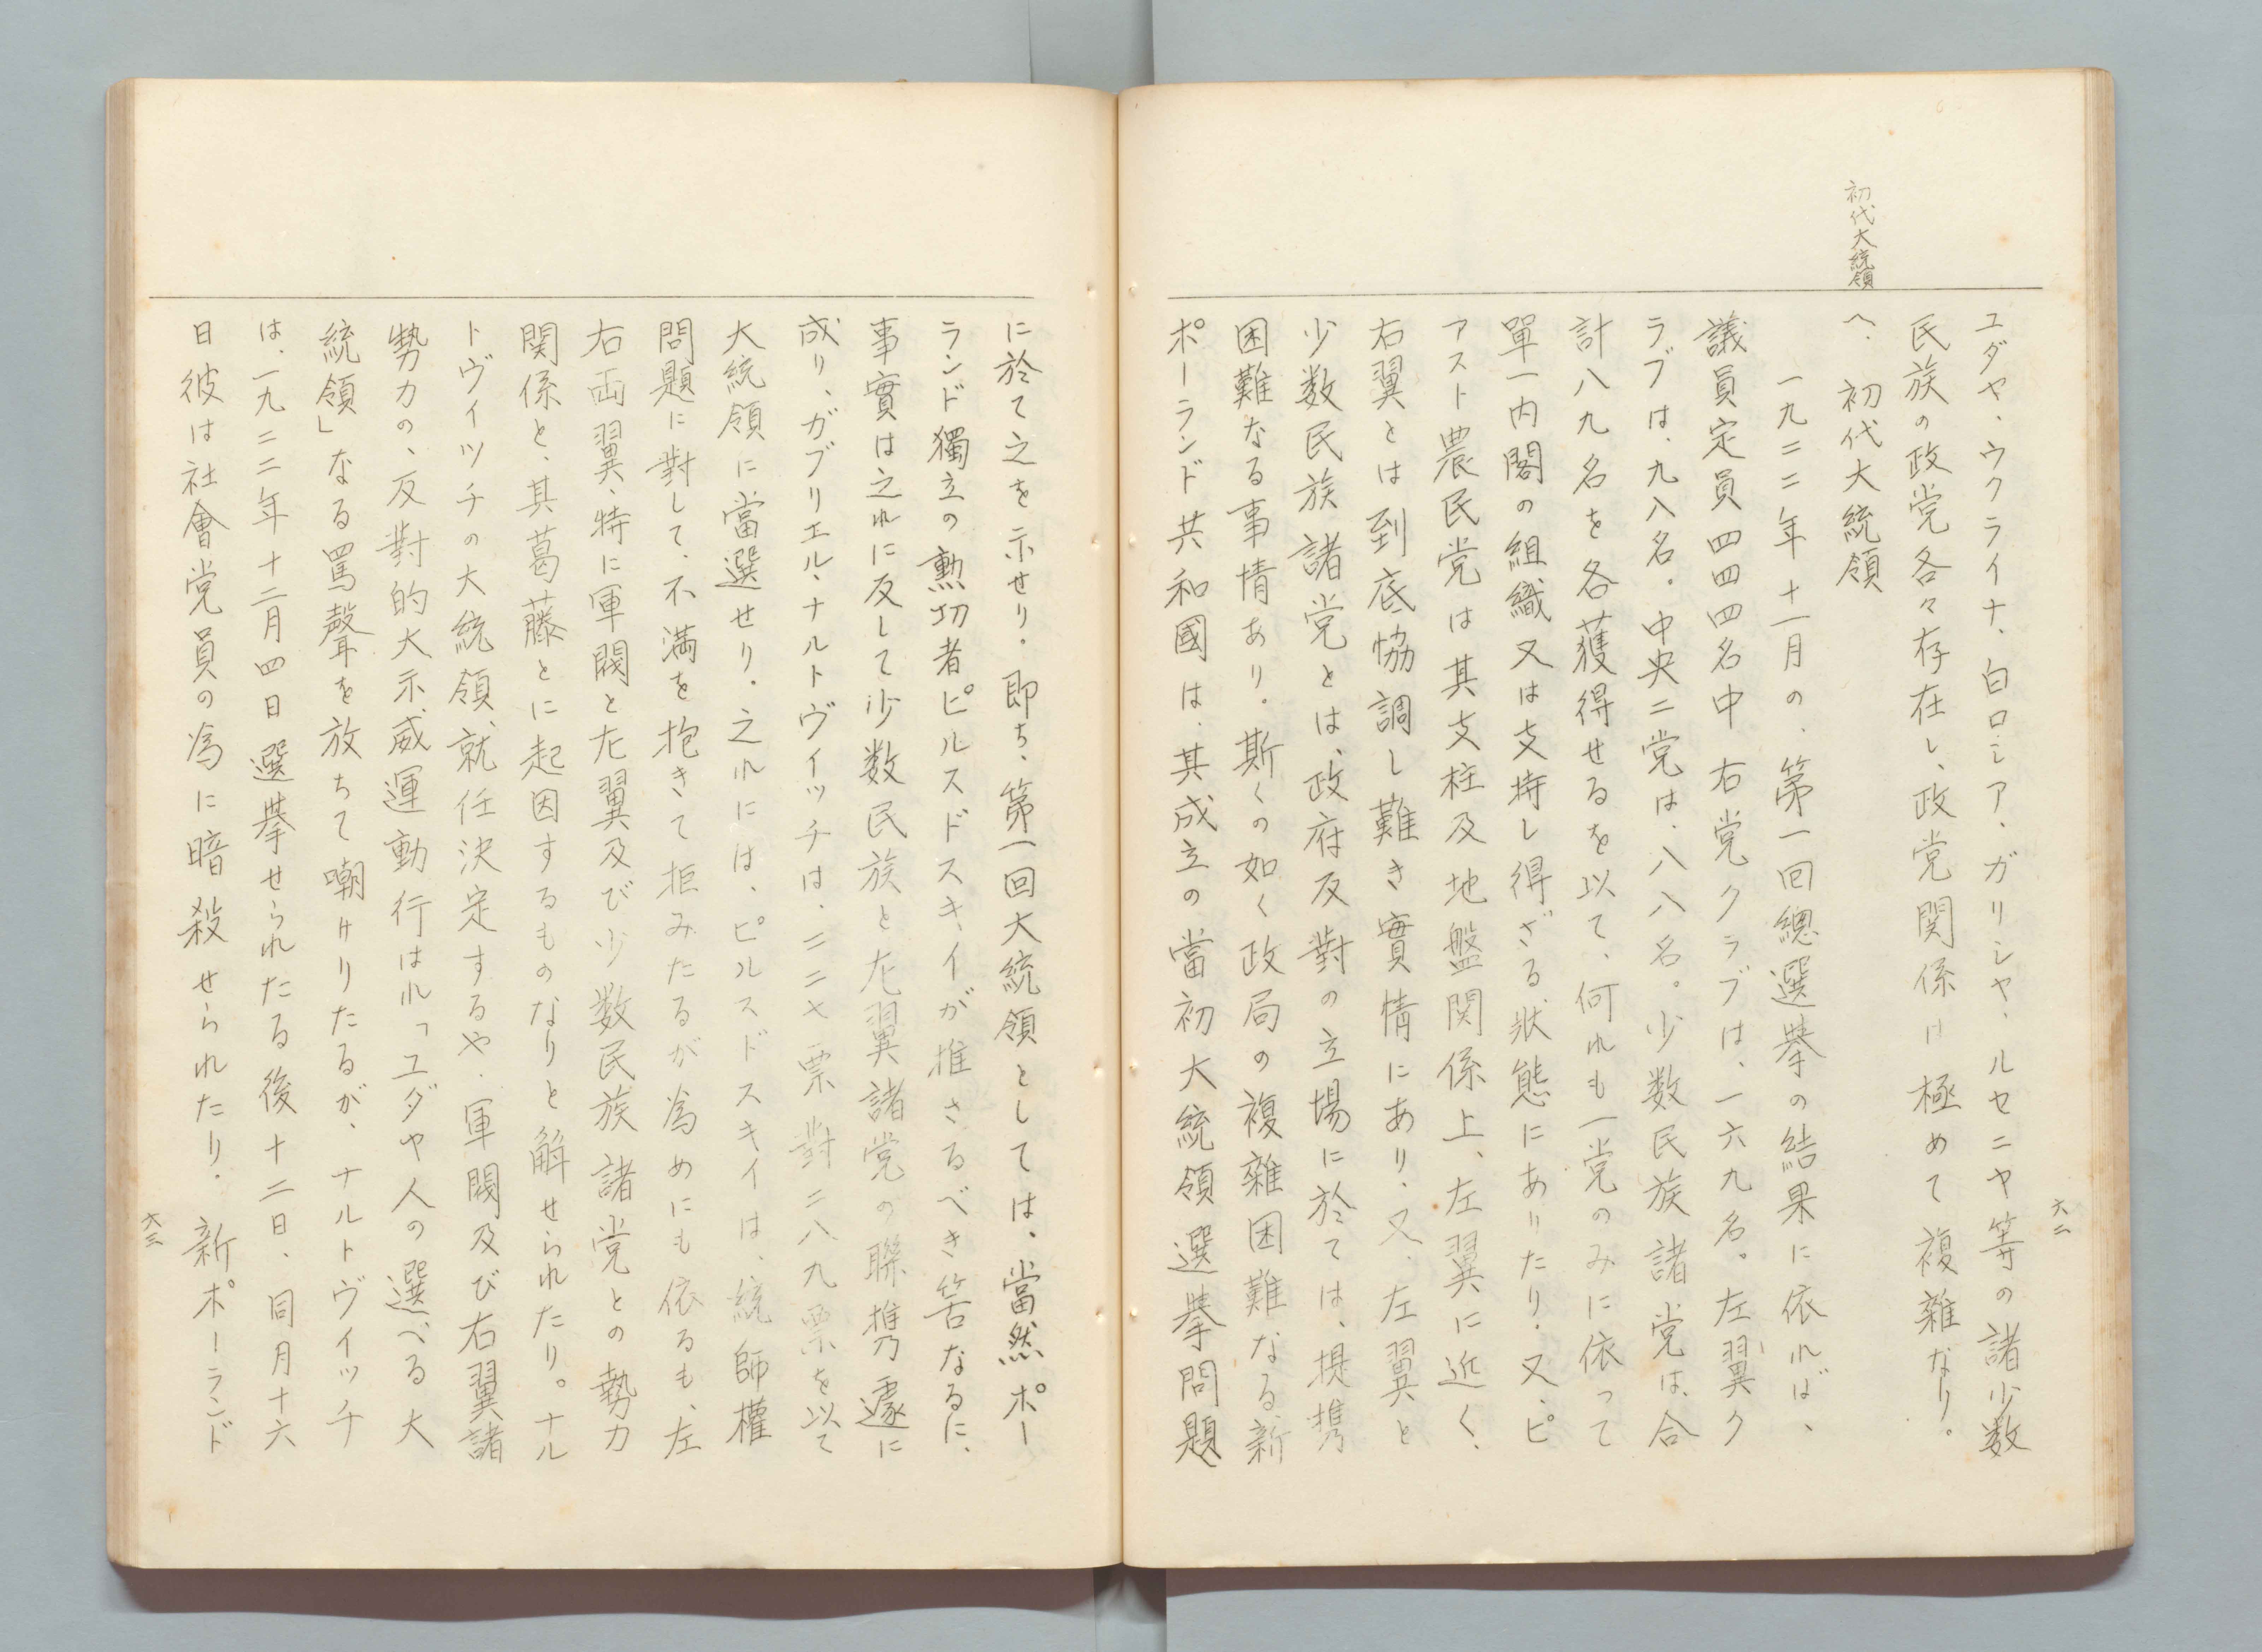 初代大統領
ユダヤ、ウクライナ、白ロシア、ガリシヤ、ルセニヤ等の諸少数
民族の政党各々存在し、政党関係は極めて複雑なり。
へ、初代大統領
一九二二年十一月の、第一回總選挙の結果に依れば、
議員定員四四四名中右党クラブは、一六九名。左翼ク
ラブは、九八名。中央二党は、八八名。少数民族諸党は、合
計八九名を各獲得せるを以て、何れも一党のみに依って
單一内閣の組織又は支持し得ざる状態にありたり。又、ピ
アスト農民党は其支柱及地盤関係上、左翼に近く、
右翼とは到底協調し難き實情にあり、又、左翼と
少数民族諸党とは、政府反對の立場に於ては、提携
困難なる事情あり。斯くの如く政局の複雑困難なる新
ポーランド共和國は、其成立の當初大統領選挙問題
六二
に於て之を示せり。即ち、第一回大統領としては、當然ポー
ランド獨立の勲功者ピルスドスキイが推さるべき筈なるに、
事實は之れに反して少数民族と左翼諸党の聯携遽に
成り、ガブリエル、ナルトヴィッチは、二二七票對二八九票を以て
大統領に當選せり。之れには、ピルスドスキイは、統師權
問題に對して、不満を抱きて拒みたるが為めにも依るも、左
右両翼、特に軍閥と左翼及び少数民族諸党との勢力
関係と、其葛藤とに起因するものなりと解せられたり。ナル
トヴィッチの大統領、就任決定するや、軍閥及び右翼諸
勢力の、反對的大示威運動行はれ「ユダヤ人の選べる大
統領」なる罵聲を放ちて嘲けりたるが、ナルトヴィッチ
は、一九二二年十二月四日選挙せられたる後十二日、同月十六
日彼は社會党員の為に暗殺せられたり。新ポーランド
六三